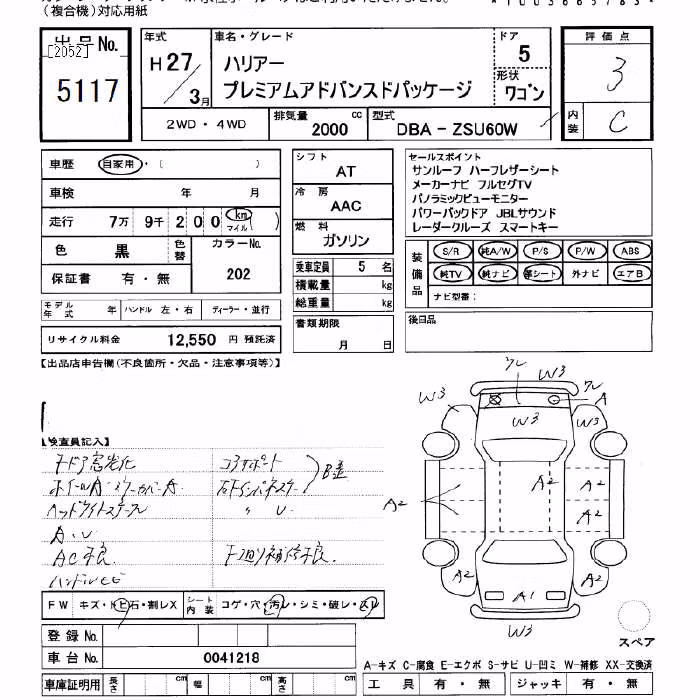 (複合機)対応用紙
出品No.
[2052]
5117
年式
H27
3月
車名・グレード
ハリアー
プレミアムアドバンスドパッケージ
ドア
5
形状
ワゴン
評価点
3
内装
C
2WD・4WD
排気量 2000 cc
型式
DBA - ZSU60W
車歴 自家用・( )
車検 年 月
走行 7万 9千 200 km マイル ( )
色 黒
色替
カラーNo.
202
保証書 有・無
モデル年式 年
ハンドル 左・右
ディーラー・並行
リサイクル料金 12,550 円 預託済
シフト
AT
冷房
AAC
燃料
ガソリン
乗車定員 5 名
積載量 kg
総重量 kg
書類期限
月 日
セールスポイント
サンルーフ ハーフレザーシート
メーカーナビ フルセグTV
パノラミックビューモニター
パワーバックドア JBLサウンド
レーダークルーズ スマートキー
装備品
S/R 純A/W P/S P/W ABS
純TV 純ナビ 革シート 外ナビ エアB
ナビ型番:
後日品
【出品店申告欄(不良箇所・欠品・注意事項等)】
【検査員記入】
コアサポート
B差
A.U
AC不良
下廻り補修不良
W3 W3
W3 W3
A
A2
A2 A2
A2
A2 A2
A1
W3
FW キズ・トビ石・割レX
シート内装 コゲ・穴・汚レ・シミ・破レ・スレ
登録No.
車台No. 0041218
車庫証明用 長さ cm 幅 cm 高さ cm
スペア
A-キズ C-腐食 E-エクボ S-サビ U-凹ミ W-補修 XX-交換済
工具 有・無 ジャッキ 有・無